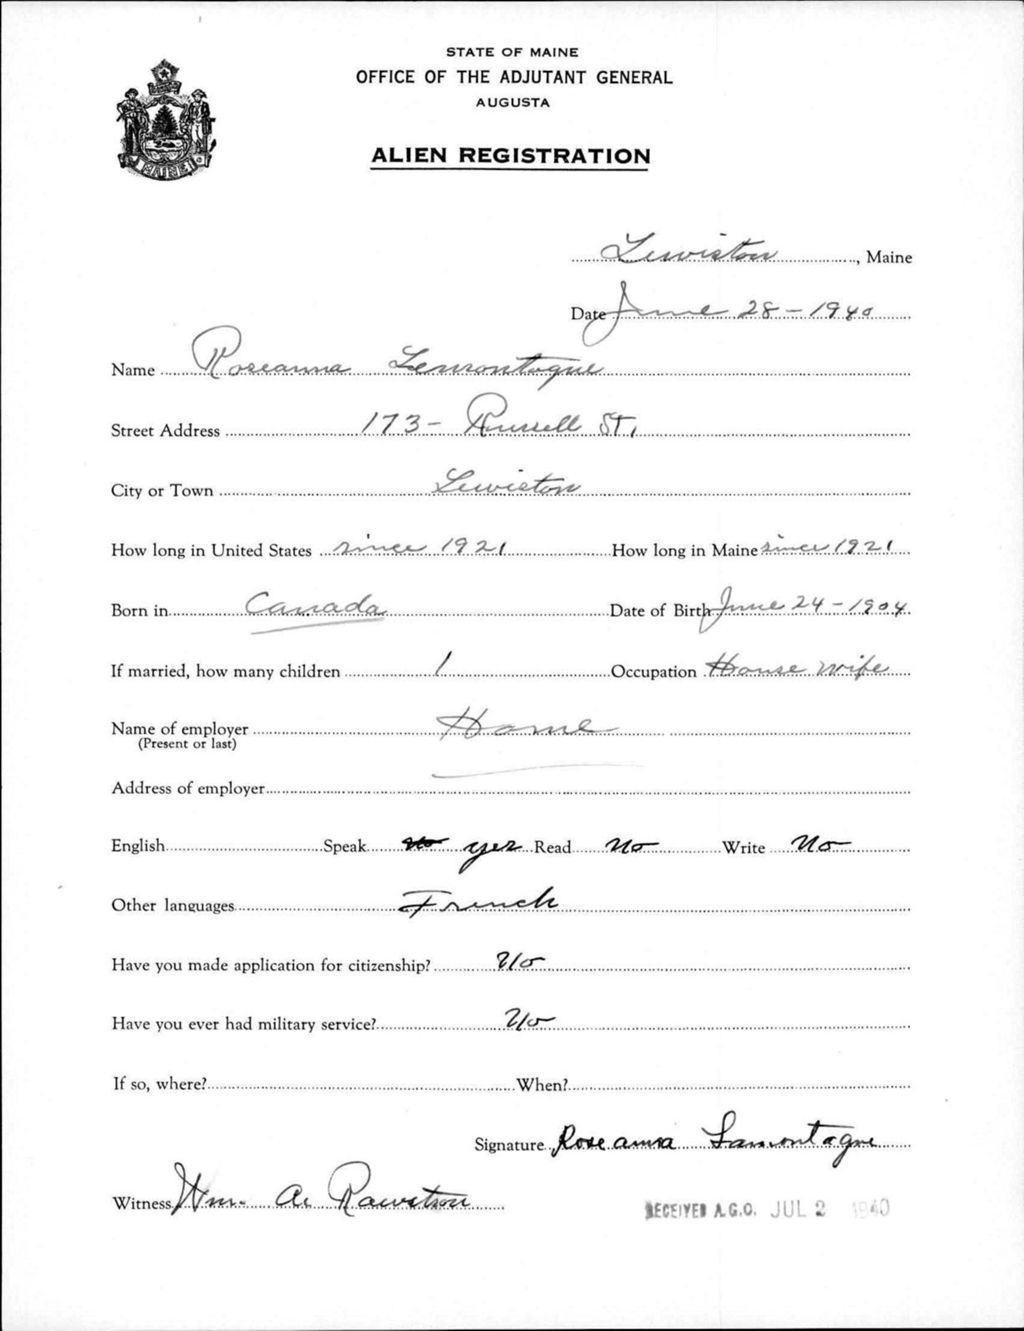 STATE OF MAINE
OFFICE OF THE ADJUTANT GENERAL
AUGUSTA
ALIEN REGISTRATION
MAINE
Lewiston, Maine
Date June 28-1940
Name Roseanna Lemontague
Street Address 173- Russell St.
City or Town Lewiston
How long in United States since 1921 How long in Maine since 1921
Born in Canada Date of Birth June 24-1904
If married, how many children 1 Occupation House wife
Name of employer Home
(Present or last)
Address of employer
English Speak no yes Read No Write No
Other languages French
Have you made application for citizenship? No
Have you ever had military service? No
If so, where? When?
Signature Roseanna Lamontagne
Witness Wm. A. 
RECEIVED A.G.O. JUL 2 1940